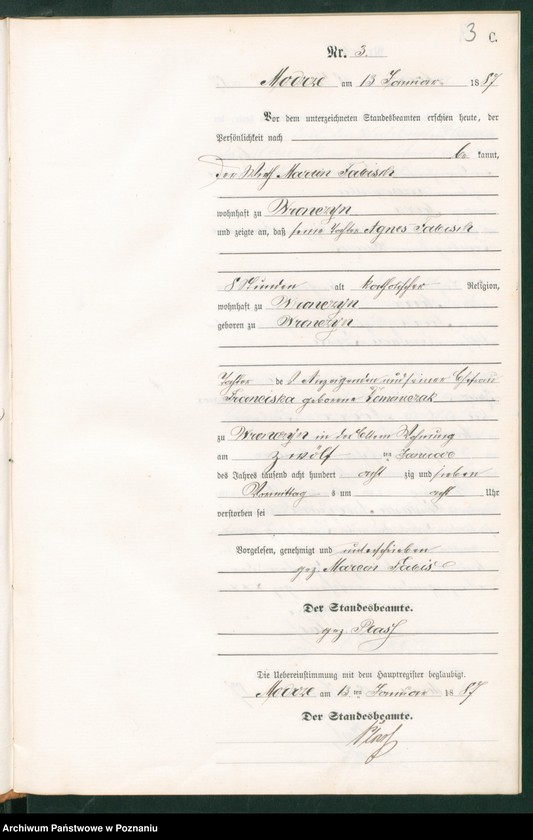 3 C.
Nr. 3.
Modrze am 13 Januar 1887
Vor dem unterzeichneten Standesbeamten erschien heute, der
Persönlichkeit nach
be kannt,
der Wirth Marcin Fabisch
wohnhaft zu Wronczyn
und zeigte an, daß seine Tochter Agnes Fabisch
8 Stunden alt katholischer Religion,
wohnhaft zu Wronczyn
geboren zu Wronczyn
Tochter de s Anzeigenden und seiner Ehefrau
Franciska geborene
zu Wronczyn in der Eltern Wohnung
am zwölf ten Januar
des Jahres tausend acht hundert acht zig und sieben
Vormittag s um acht Uhr
verstorben sei
Vorgelesen, genehmigt und unterschrieben
gez. Marcin Fabis
Der Standesbeamte.
gez.
Die Uebereinstimmung mit dem Hauptregister beglaubigt.
Modrze am 13 ten Januar 1887
Der Standesbeamte.
Archiwum Państwowe w Poznaniu